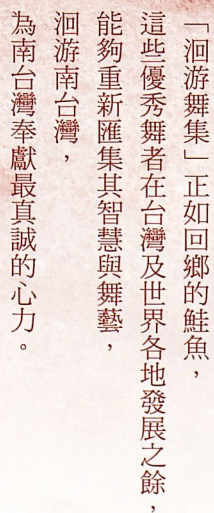 「洄游舞集」正如回鄉的鮭魚，
這些優秀舞者在台灣及世界各地發展之餘，
能夠重新匯集其智慧與舞藝，
洄游南台灣，
為南台灣奉獻最真誠的心力。